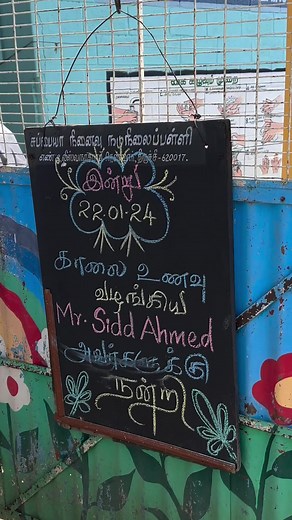 சுப்பையா நினைவு நடுநிலைப்பள்ளி
620017.
இன்று
22.01.24
காலை உணவு
வழங்கிய
Mr. Sidd Ahmed
அவர்களுக்கு
நன்றி